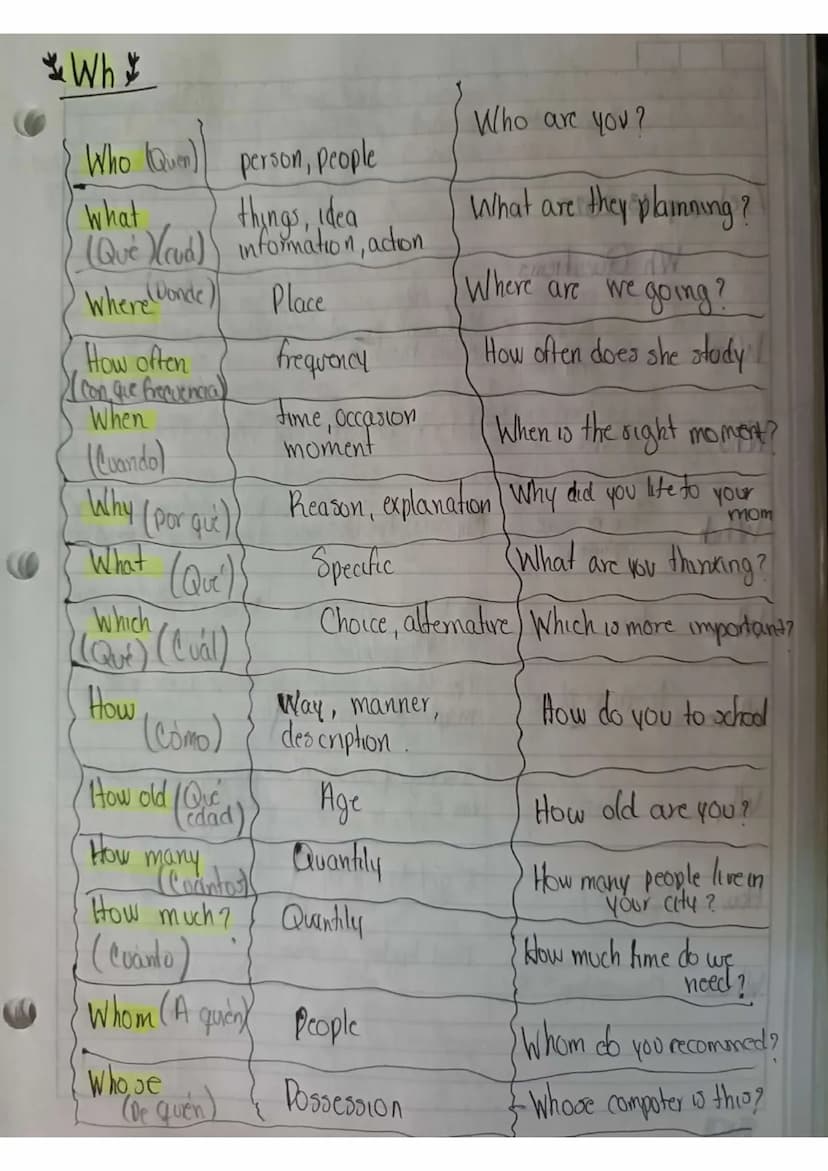 Wh
Who (Quen) person, people Who are you?
What things, idea What are they plamnning?
(Qué) (cuál) information, action
Where (Donde) Place Where are we going?
How often frequency How often does she study
(Con que frecuencia)
When time, occasion When is the right moment?
(Cuando) moment
Why (por qué) Reason, explanation Why did you lie to your
mom
What (Qué) Specific What are you thinking?
Which Choice, alternative Which is more important?
(Qué) (Cuál)
How Way, manner, How do you to school
(Cómo) description.
How old (Qué Age How old are you?
edad)
How many Quantily How many people live in
(Cuántos) your city?
How much? Quantily
(Cuánto) How much time do we
need?
Whom (A quién) People Whom do you recommed?
Whose Possession Whose computer is this?
(De quén)